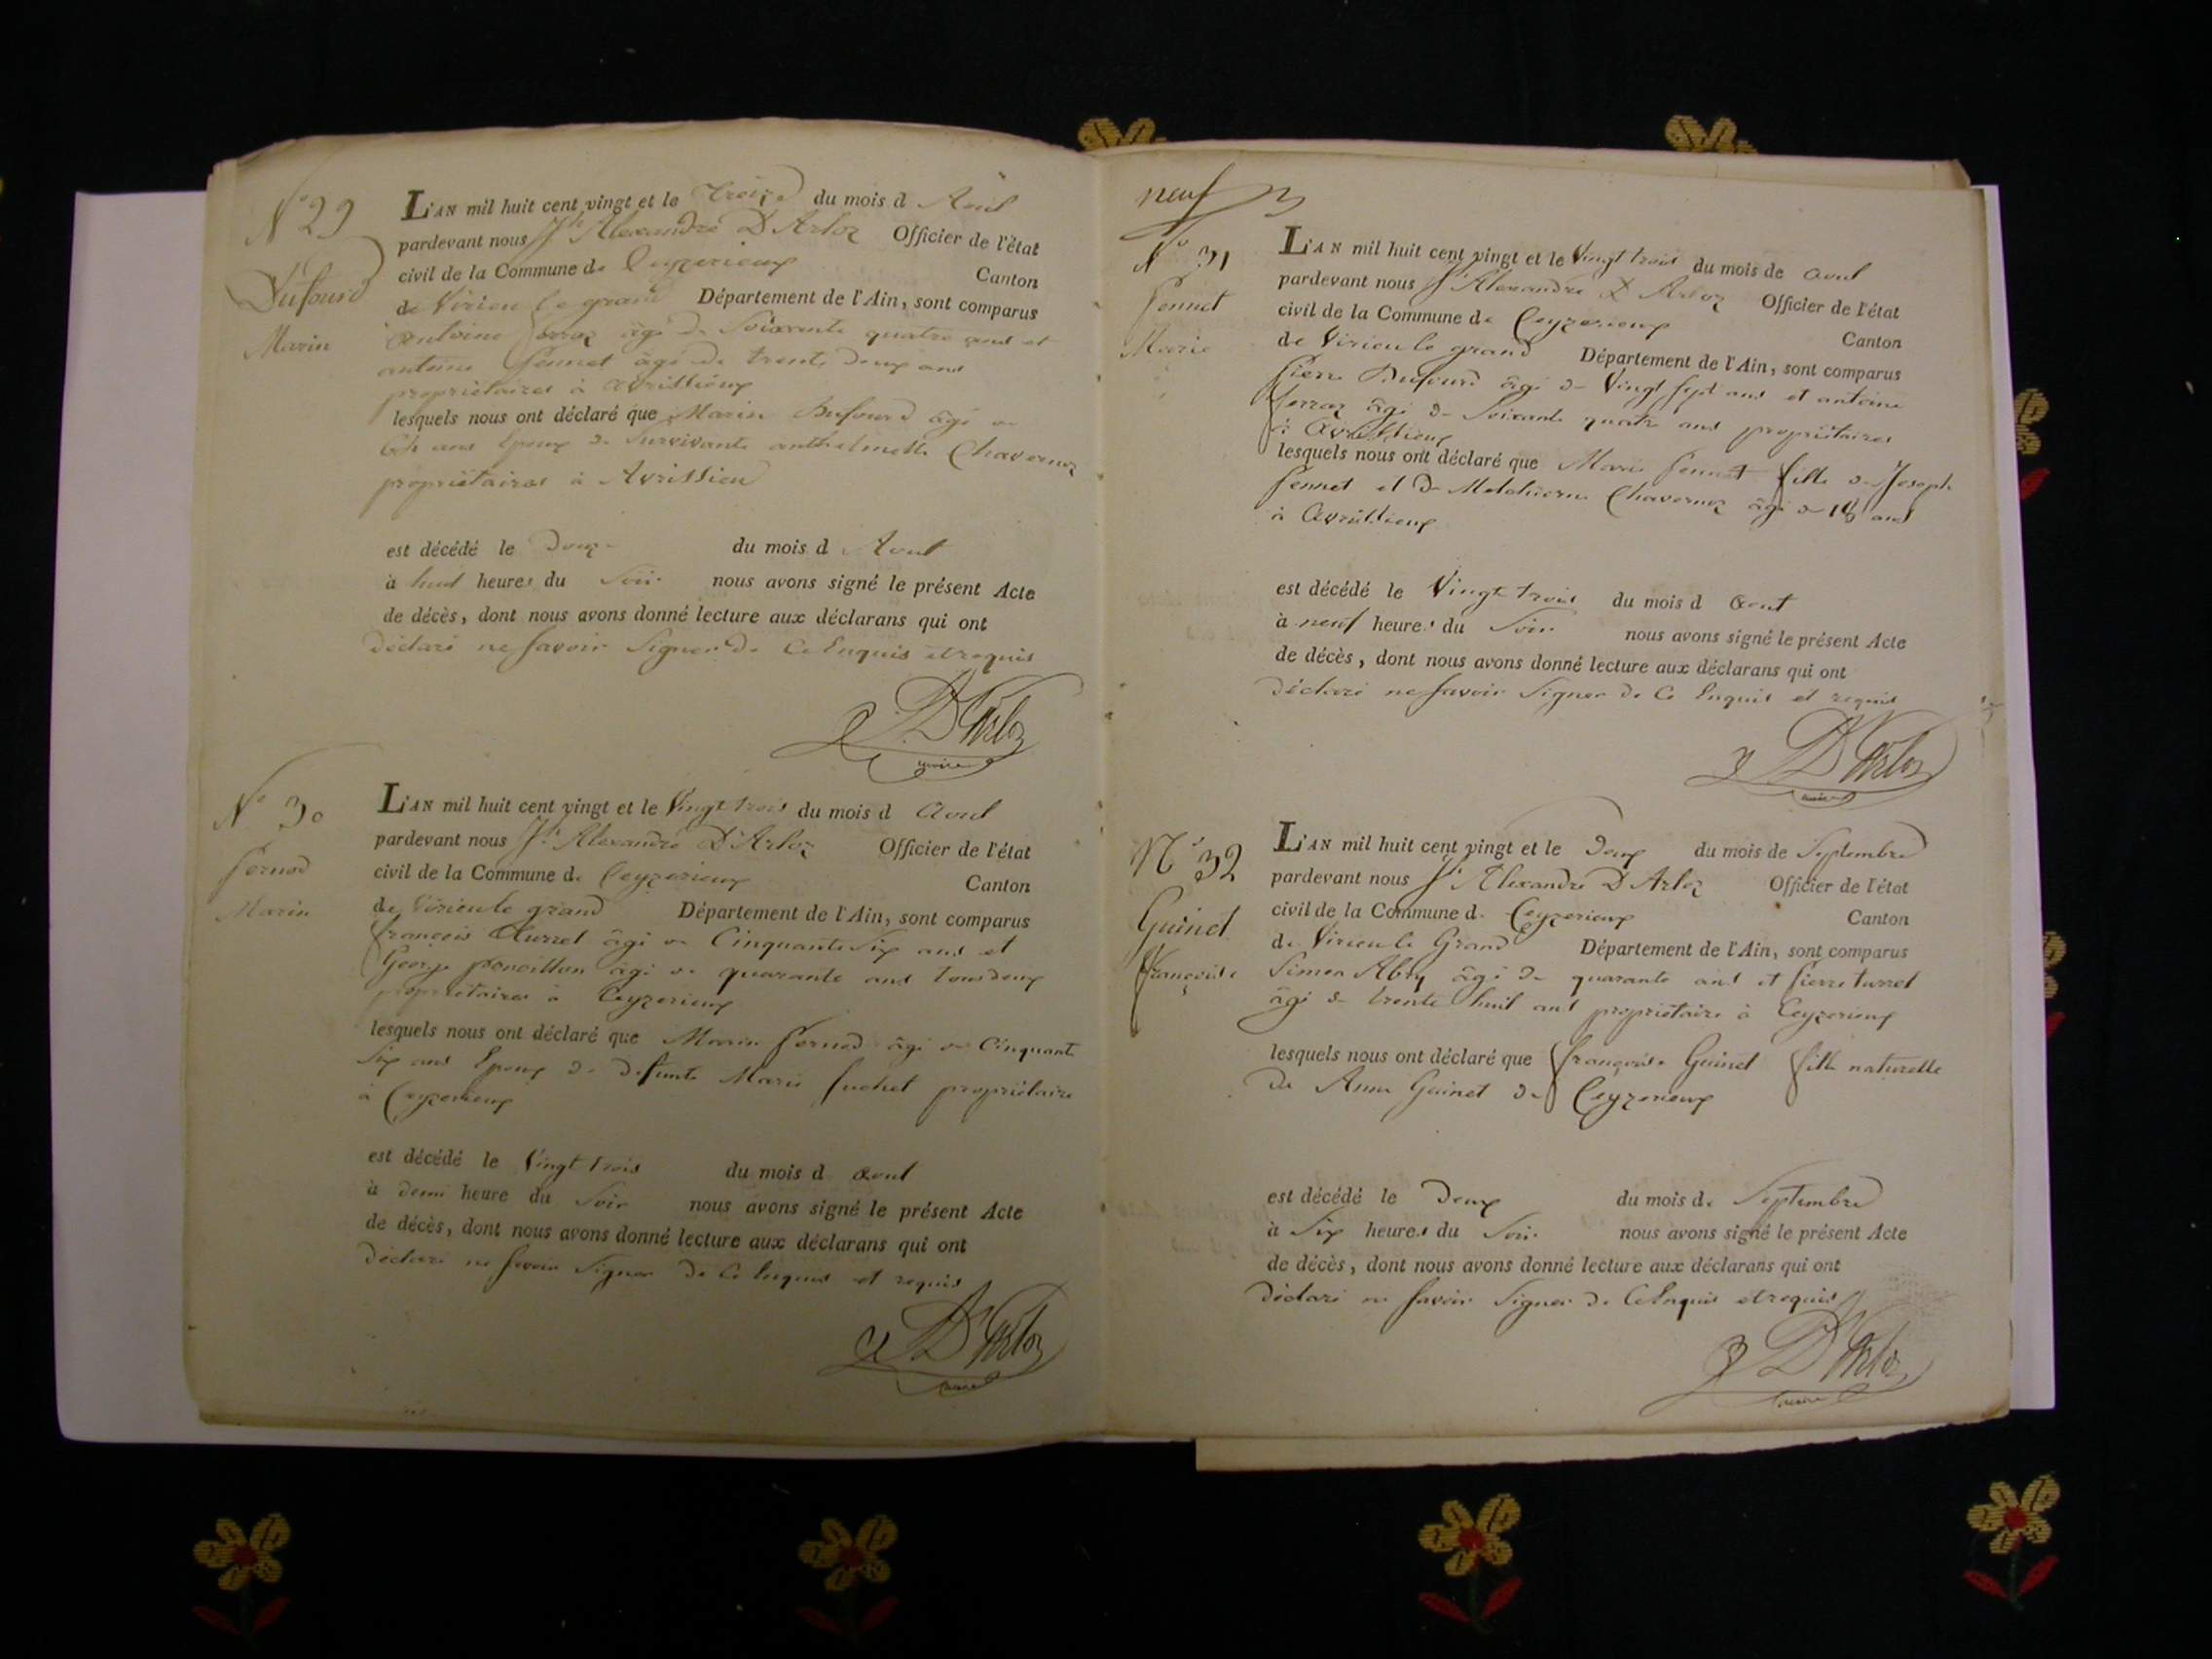 N° 29
Dufourd
Marin
L'AN mil huit cent vingt et le treize du mois d Aout
pardevant nous Jh Alexandre D'Arloz Officier de l'état
civil de la Commune de Ceyzerieux Canton
de Virieu le grand Département de l'Ain, sont comparus
antoine âgé de Soixante quatre ans et
antoine Pennet âgé de trente deux ans
propriétaires à avrissieux
lesquels nous ont déclaré que Marin Dufourd âgé de
ans Epoux de Survivante anthelmette Chavernoz
propriétaires à Avrissieu
est décédé le Douze du mois d Aout
à huit heures du Soir nous avons signé le présent Acte
de décès, dont nous avons donné lecture aux déclarans qui ont
déclaré ne savoir Signer de Ce Enquis et requis
J. D'Arloz
maire
N° 30
Pernod
Marin
L'AN mil huit cent vingt et le Vingt trois du mois d Aout
pardevant nous Jh Alexandre D'Arloz Officier de l'état
civil de la Commune de Ceyzerieux Canton
de Virieu le grand Département de l'Ain, sont comparus
françois turrel âgé de Cinquante Six ans et
George âgé de quarante ans tous deux
propriétaires à Ceyzerieux
lesquels nous ont déclaré que Marin Pernod âgé de Cinquante
Six ans Epoux de défunte Marie Suchet propriétaire
à Ceyzerieux
est décédé le Vingt trois du mois d aout
à demi heure du Soir nous avons signé le présent Acte
de décès, dont nous avons donné lecture aux déclarans qui ont
déclaré ne savoir Signer de Ce Enquis et requis
J D'Arloz
maire
neuf
N° 31
Pennet
Marie
L'AN mil huit cent vingt et le Vingt trois du mois de aout
pardevant nous Jh Alexandre D'Arloz Officier de l'état
civil de la Commune de Ceyzerieux Canton
de Virieu le grand Département de l'Ain, sont comparus
Pierre Dufourd âgé de Vingt Sept ans et antoine
âgé de Soixante quatre ans propriétaires
à Avrissieux
lesquels nous ont déclaré que Marie Pennet fille de Joseph
Pennet et de Melchierne Chavernoz âgé de 18 ans
à Avrissieux
est décédé le Vingt trois du mois d aout
à neuf heures du Soir nous avons signé le présent Acte
de décès, dont nous avons donné lecture aux déclarans qui ont
déclaré ne savoir Signer de Ce Enquis et requis
J D'Arloz
maire
N° 32
Guinet
françoise
L'AN mil huit cent vingt et le Deux du mois de Septembre
pardevant nous Jh Alexandre D'Arloz Officier de l'état
civil de la Commune de Ceyzerieux Canton
de Virieu le Grand Département de l'Ain, sont comparus
Simon Abry âgé de quarante ans et Pierre turrel
âgé de trente huit ans propriétaire à Ceyzerieux
lesquels nous ont déclaré que françoise Guinet fille naturelle
de Anne Guinet de Ceyzerieux
est décédé le Deux du mois de Septembre
à Six heures du Soir nous avons signé le présent Acte
de décès, dont nous avons donné lecture aux déclarans qui ont
déclaré ne savoir Signer de Ce Enquis et requis
J D'Arloz
maire